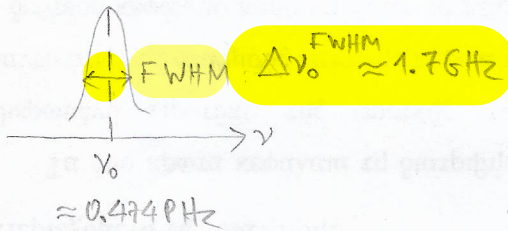 FWHM
Δν₀ᶠᵂᴴᴹ ≈ 1.7GHz
ν
ν₀
≈ 0.474 PHz